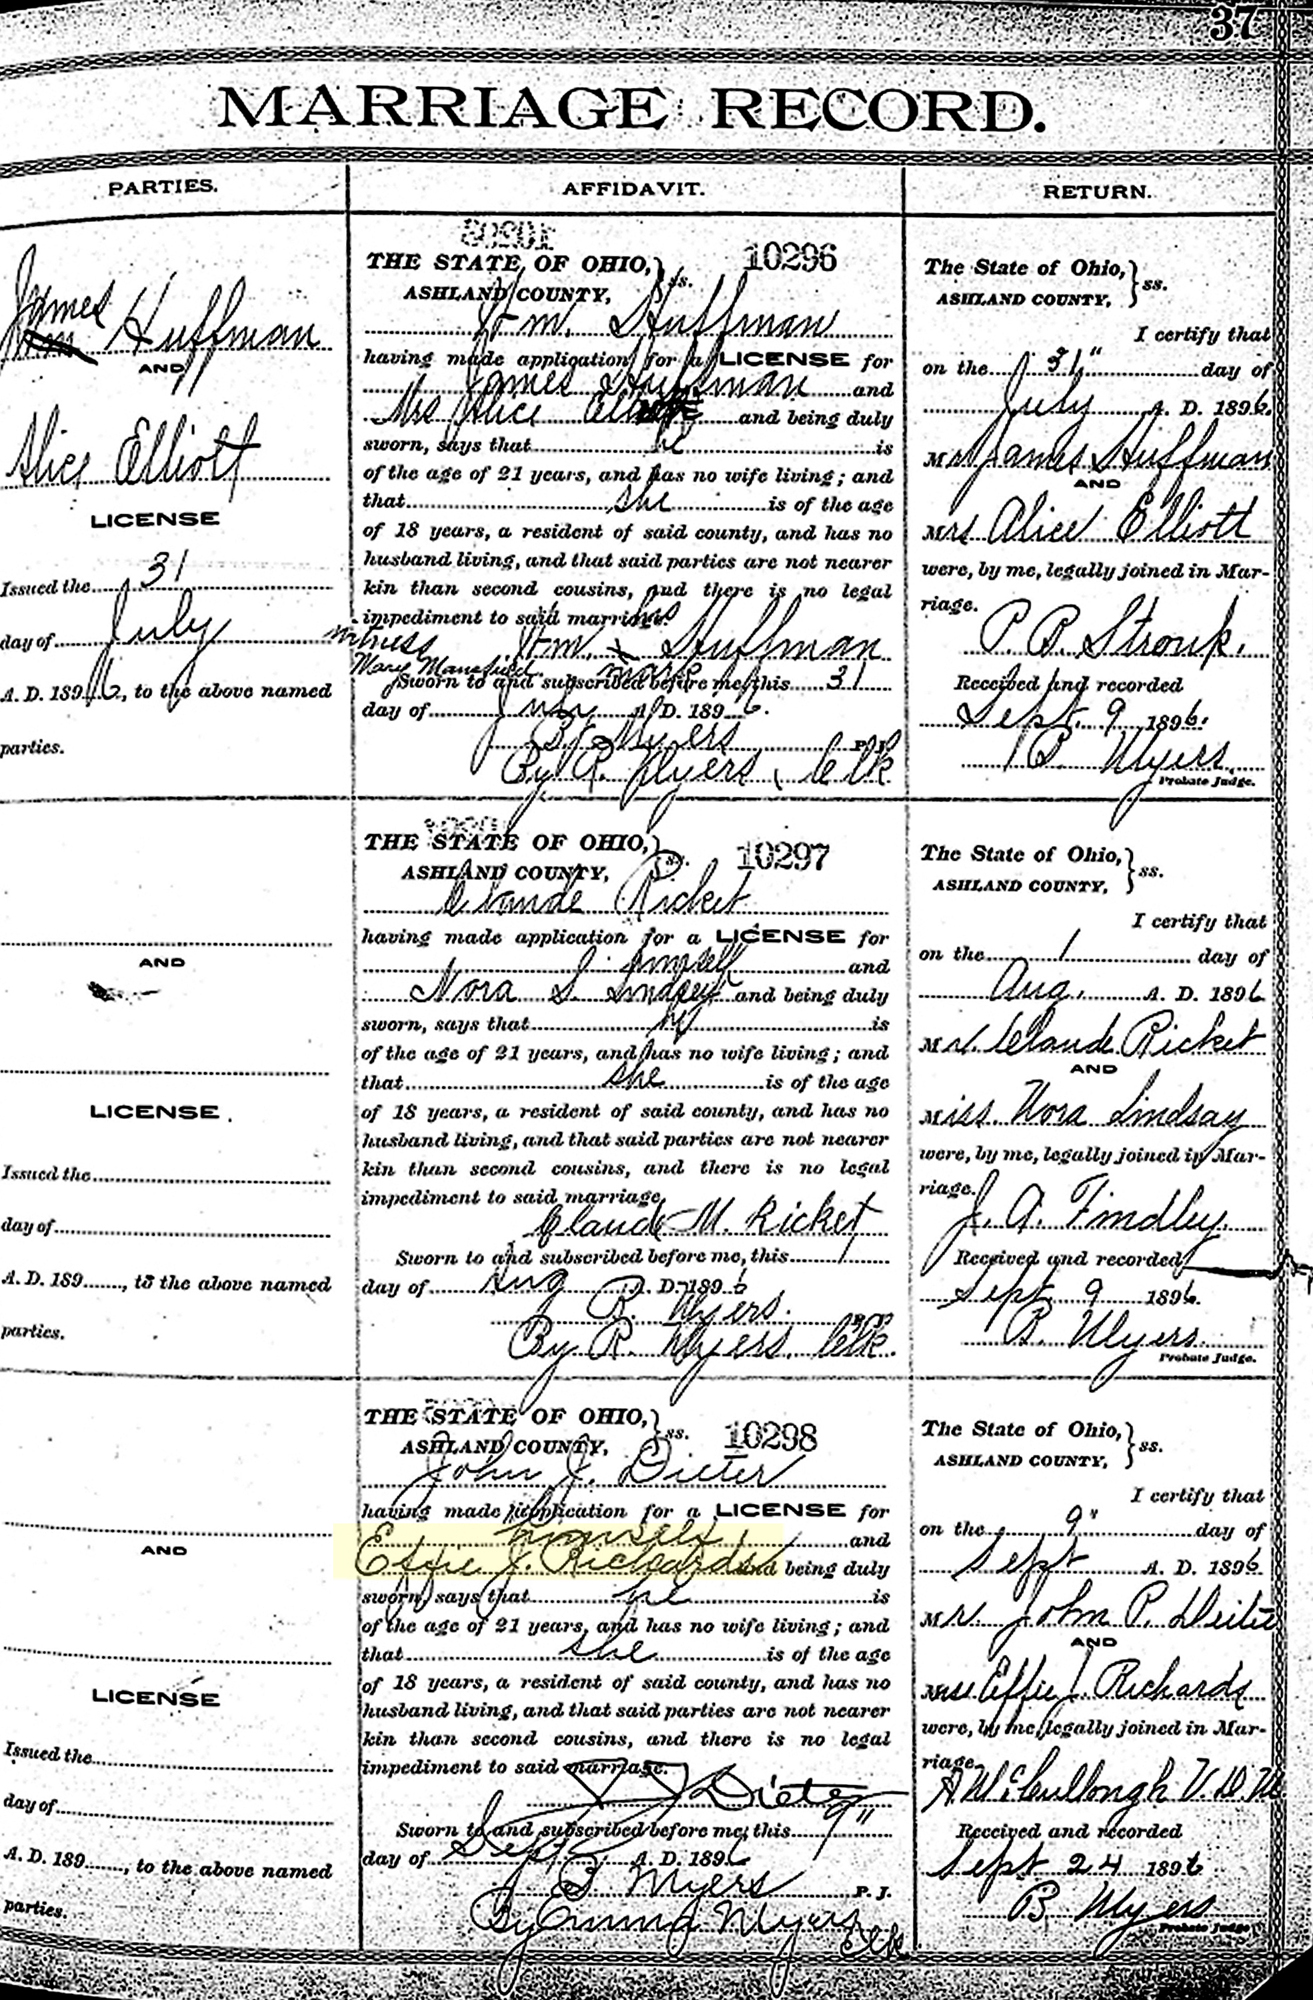 37
MARRIAGE RECORD.
PARTIES.
James
Huffman
AND
Alice Elliott
LICENSE
Issued the 31
day of July
A. D. 1896, to the above named
parties.
AND
LICENSE.
Issued the
day of
A. D. 189, to the above named
parties.
AND
LICENSE
Issued the
day of
A. D. 189, to the above named
parties.
AFFIDAVIT.
10296
THE STATE OF OHIO,
ASHLAND COUNTY, } ss.
Wm. Huffman
having made application for a LICENSE for
James Huffman and
Mrs Alice and being duly
sworn, says that he is
of the age of 21 years, and has no wife living; and
that she is of the age
of 18 years, a resident of said county, and has no
husband living, and that said parties are not nearer
kin than second cousins, and there is no legal
impediment to said marriage.
his
witness Wm. x Huffman
Mary Mansfield mark
Sworn to and subscribed before me, this 31
day of July A. D. 1896.
B. Myers P. J.
By R. Myers, Clk
10297
THE STATE OF OHIO,
ASHLAND COUNTY, } ss.
Claude Ricket
having made application for a LICENSE for
himself and
Nora S. Lindsey and being duly
sworn, says that he is
of the age of 21 years, and has no wife living; and
that she is of the age
of 18 years, a resident of said county, and has no
husband living, and that said parties are not nearer
kin than second cousins, and there is no legal
impediment to said marriage.
Claude M. Ricket
Sworn to and subscribed before me, this 1
day of Aug A. D. 1896
B. Myers. P. J.
By R. Myers. Clk.
10298
THE STATE OF OHIO,
ASHLAND COUNTY, } ss.
John J. Dieter
having made application for a LICENSE for
himself and
Effie J. Richards and being duly
sworn, says that he is
of the age of 21 years, and has no wife living; and
that she is of the age
of 18 years, a resident of said county, and has no
husband living, and that said parties are not nearer
kin than second cousins, and there is no legal
impediment to said marriage.
J J Dieter
Sworn to and subscribed before me, this 9"
day of Sept A. D. 1896
B Myers P. J.
By Emma Myers
Clk
RETURN.
The State of Ohio,
ASHLAND COUNTY, } ss.
I certify that
on the 31" day of
July A. D. 1896.
Mr James Huffman
AND
Mrs Alice Elliott
were, by me, legally joined in Mar-
riage.
P. B. Stroup.
Received and recorded
Sept. 9 1896.
B. Myers
Probate Judge.
The State of Ohio,
ASHLAND COUNTY, } ss.
I certify that
on the 1 day of
Aug. A. D. 1896
Mr. Claude Ricket
AND
Miss. Nora Lindsay
were, by me, legally joined in Mar-
riage.
J. A. Findley.
Received and recorded
Sept. 9 1896.
B. Myers.
Probate Judge.
The State of Ohio,
ASHLAND COUNTY, } ss.
I certify that
on the 9" day of
Sept A. D. 1896
Mr. John P. Deiter
AND
Miss Effie J. Richards
were, by me, legally joined in Mar-
riage.
A McCullough V. D. M
Received and recorded
Sept 24 1896.
B. Myers
Probate Judge